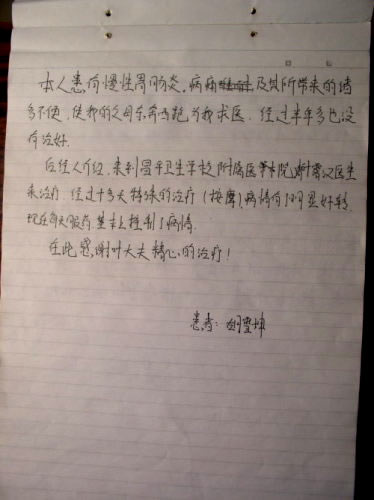 本人患有慢性胃肠炎，病痛及其所带来的诸
多不便，使我的父母东奔西跑为我求医。经过半年多也没
有治好。
后经人介绍，来到昌平卫生学校附属医院，谢震汉医生
来治疗，经过十多天特殊的治疗（按摩）病情有明显好转，
现在每天服药，基本上控制了病情。
在此感谢叶大夫精心的治疗！
患者：